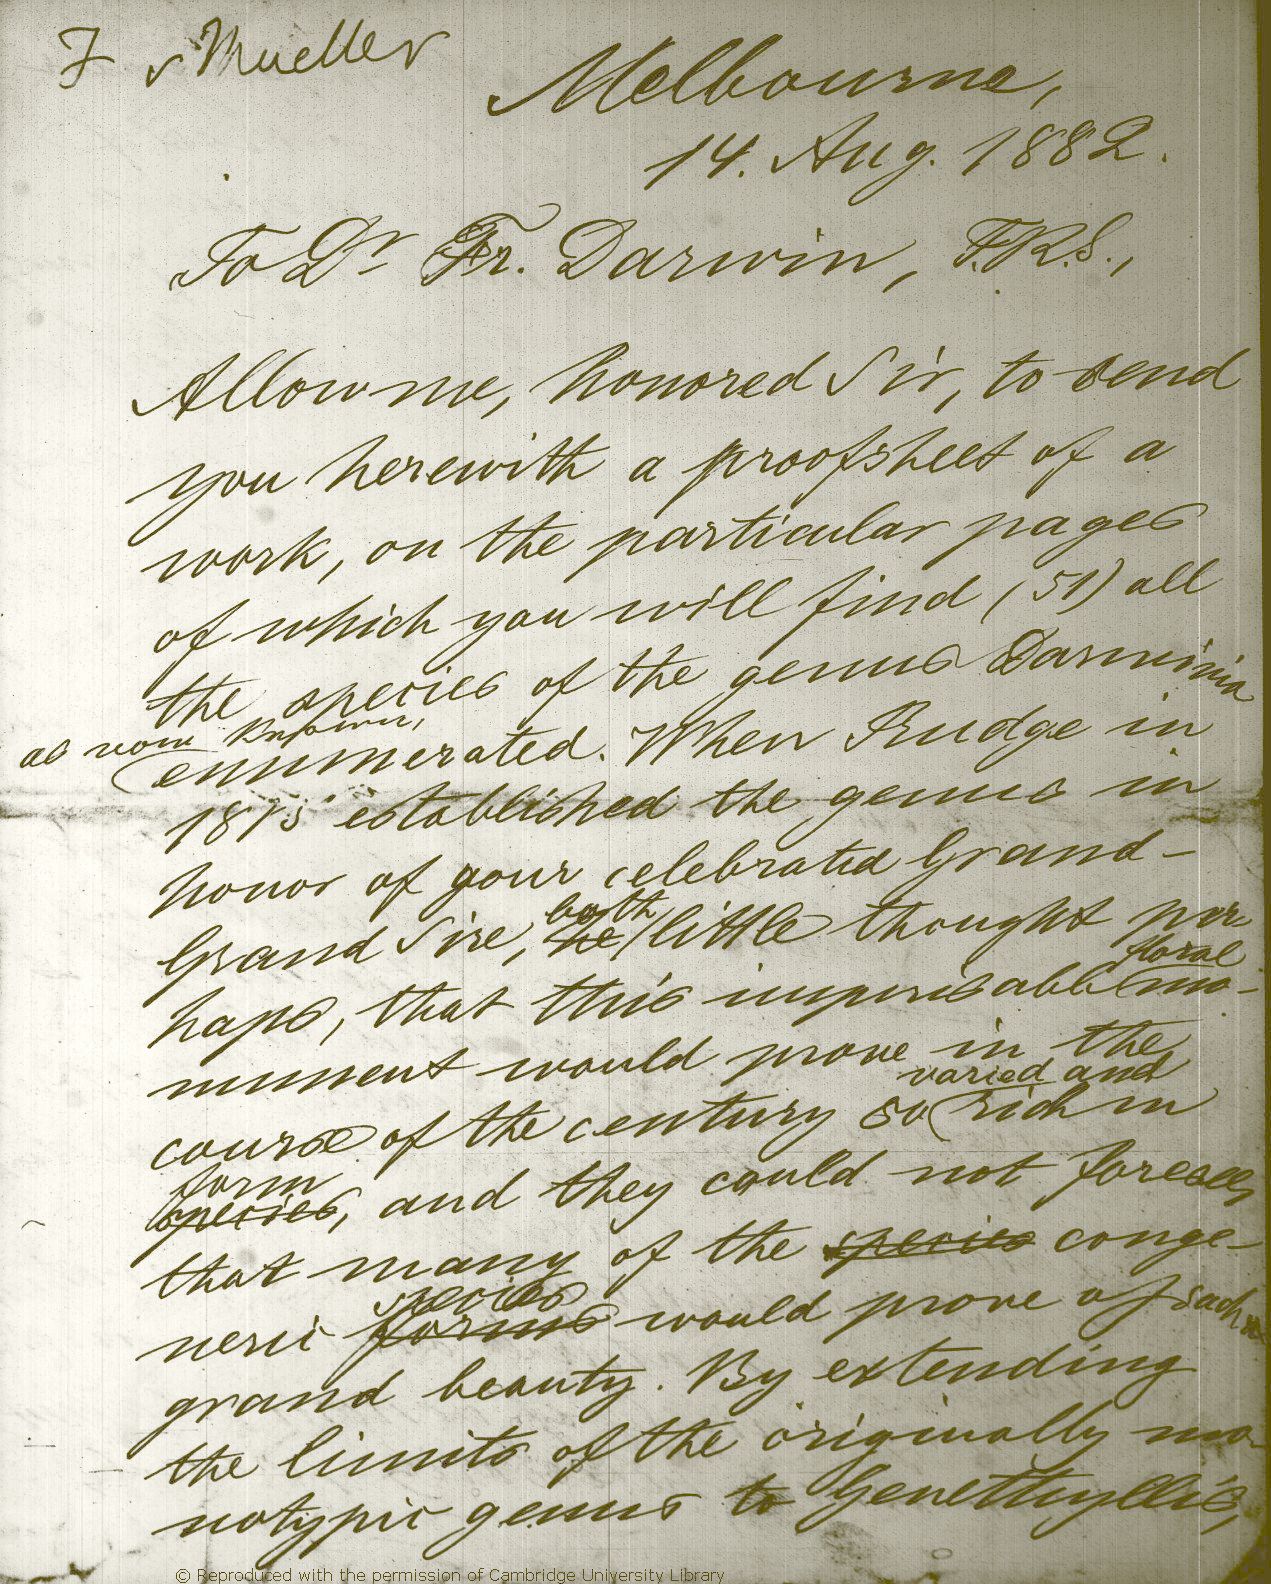 F v Mueller
Melbourne,
14. Aug. 1882.
To Dr Fr. Darwin, F.R.S.,
Allow me, honored Sir, to send
you herewith a proofsheet of a
work, on the particular pages
of which you will find (51) all
the species of the genus Darwinia
as now known,
enumerated. When Rudge in
1815 established the genus in
honor of your celebrated Grand-
Grand Sire, he both little thought per
haps, that this imperisabl floral mo-
nument would prove in the
course of the century so varied and rich in
species form, and they could not foresee
that many of the species conge-
neric forms species would prove of such
grand beauty. By extending
the limits of the originally mo-
notypic genus to Genethyllis,
© Reproduced with the permission of Cambridge University Library